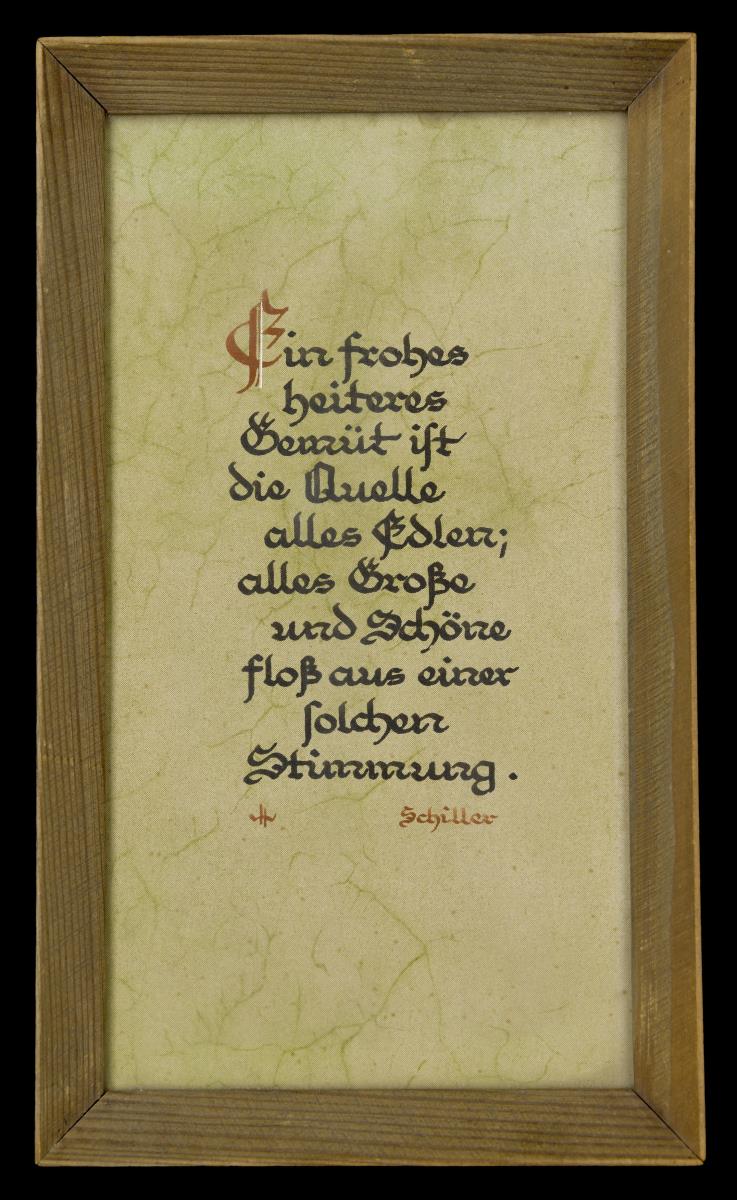 Ein frohes
heiteres
Gemüt iſt
die Quelle
alles Edlen;
alles Große
und Schöne
floß aus einer
ſolchen
Stimmung.
Schiller